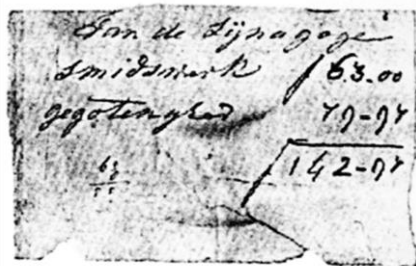 Aan de Sijnagoge
smidswerk 63.00
gegoten 79-97
142-97
63